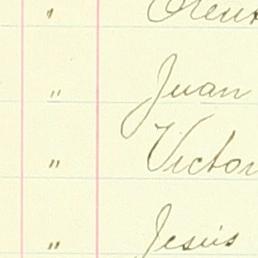 "
" Juan
" Victor
" Jesús